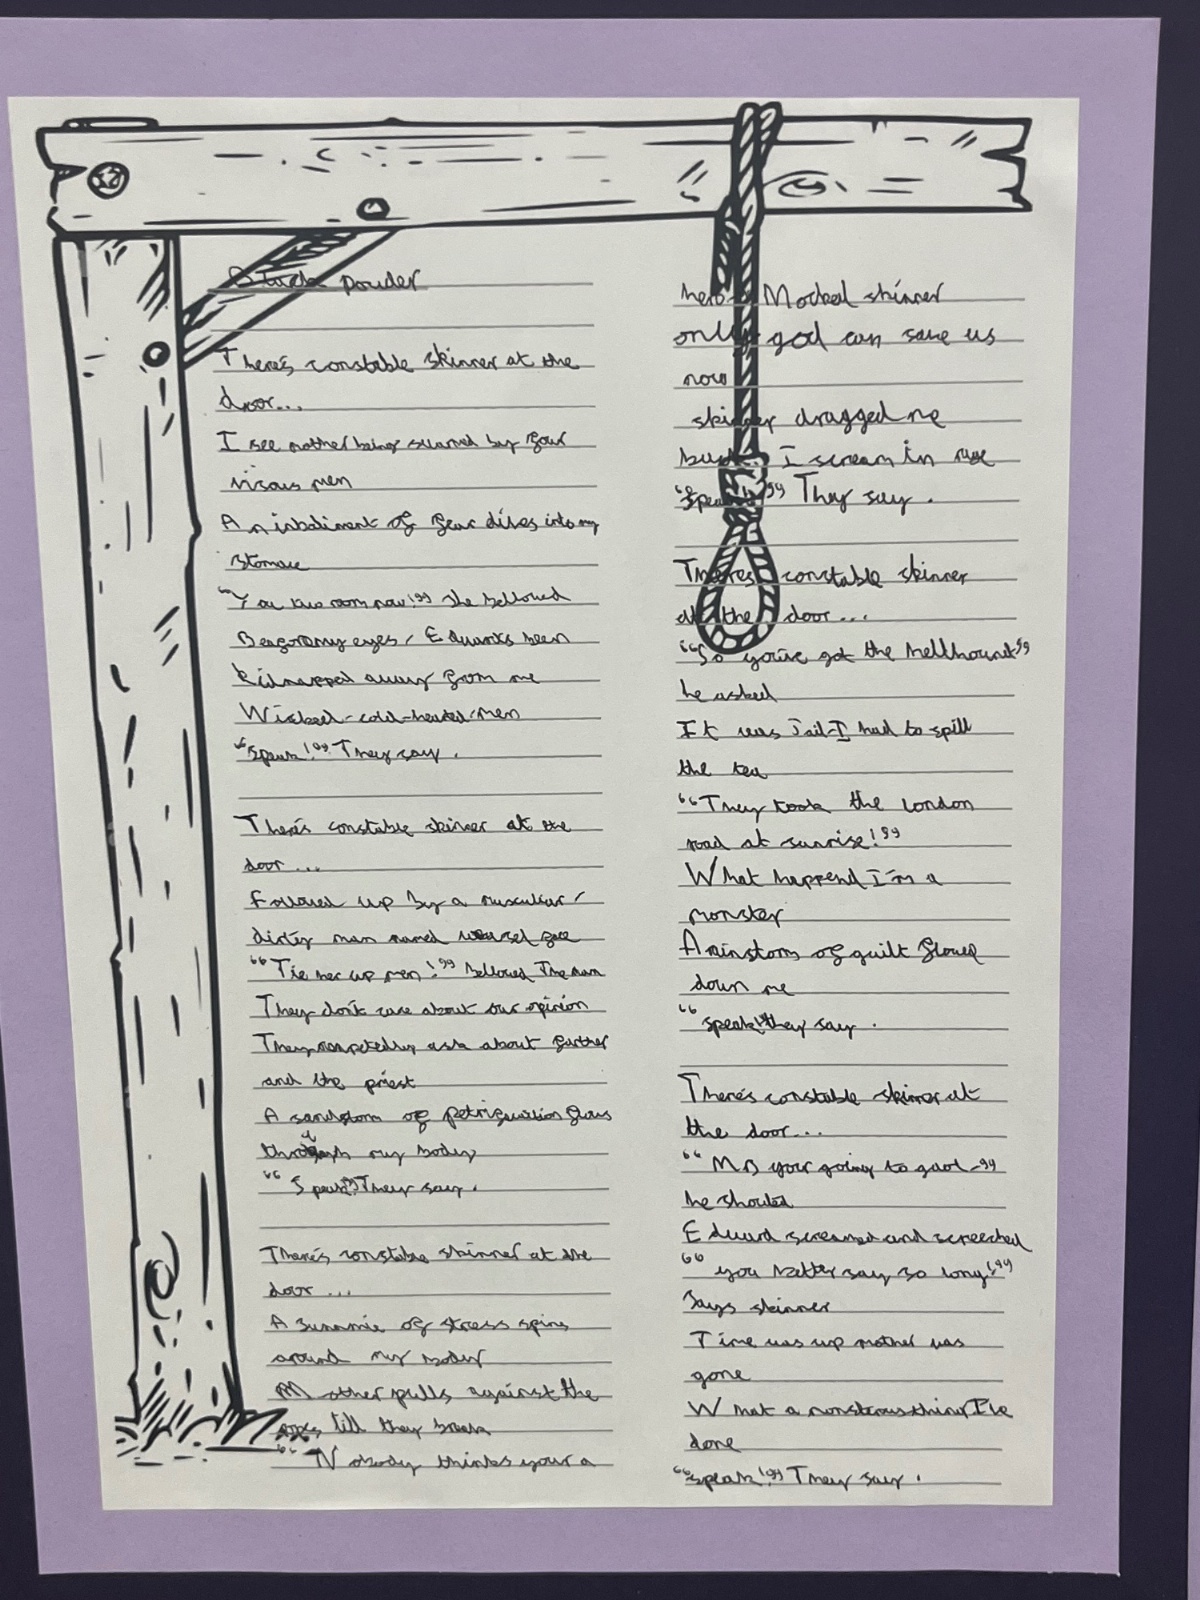 Black powder
There's constable skinner at the
door...
I see mother being scarred by four
visous men
An inbolment of fear dives into my
stomace
"You two room now!" she bellowed
Before my eyes, Edwards been
kidnapped away from me
Wicked-cold-hearted-men
"Speak!" They say.
There's constable skinner at the
door...
Followed up by a musculur,
dirty man named weasel face
"Tie her up men!" bellowed The man
They don't care about our opinion
They ask about farther
and the priest
A sandstorm of petrification flows
through my body
"Speak!" They say.
There's constable skinner at the
door...
A sunamie of stress spins
around my body
Mother pulls against the
ropes till they break
"Nobody thinks your a
hero" Mocked skinner
only god can save us
now
skinner dragged me
back. I scream in
"Speak!" They say.
There's constable skinner
at the door...
"So you've got the hellhound"
he asked
It was Jail-I had to spill
the tea
"They took the London
road at sunrise!"
What happend I'm a
monster
A rainstorm of guilt flowed
down me
"speak!" they say.
There's constable skinner at
the door...
"MB your going to gaol-"
he shouted
Edward screamed and screeched
"you better say so long!"
Says skinner
Time was up mother was
gone
What a monstrous thing I've
done
"speak!" They say.